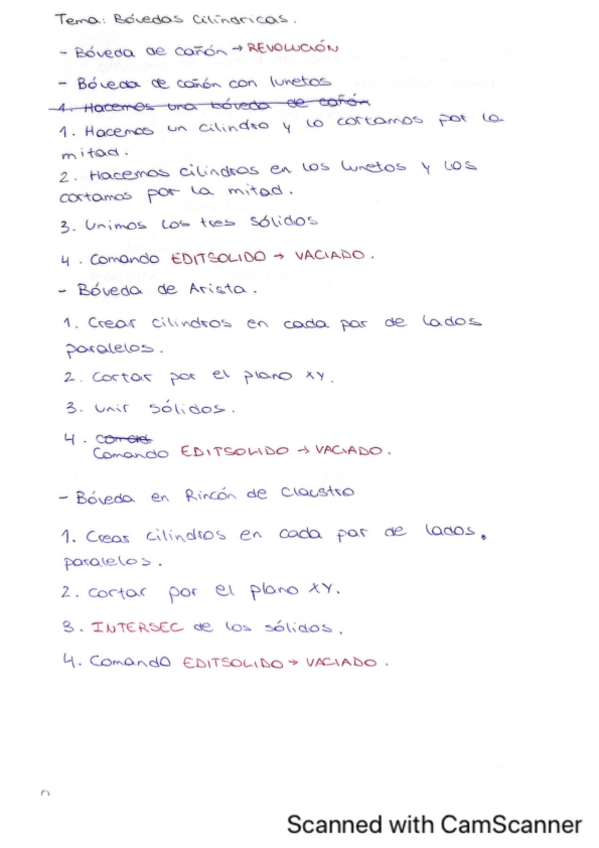 Tema: Bóvedas Cilíndricas.
- Bóveda de cañón → REVOLUCIÓN
- Bóveda de cañón con lunetos
1. Hacemos una bóveda de cañón
1. Hacemos un cilindro y lo cortamos por la
mitad.
2. Hacemos cilindros en los lunetos y los
cortamos por la mitad.
3. Unimos los tres sólidos
4. Comando EDITSOLIDO → VACIADO.
- Bóveda de Arista.
1. Crear cilindros en cada par de lados
paralelos.
2. Cortar por el plano XY.
3. Unir sólidos.
4.
Comando EDITSOLIDO → VACIADO.
- Bóveda en Rincón de Claustro
1. Crear cilindros en cada par de lados.
paralelos.
2. Cortar por el plano XY.
3. INTERSEC de los sólidos.
4. Comando EDITSOLIDO → VACIADO.
Scanned with CamScanner